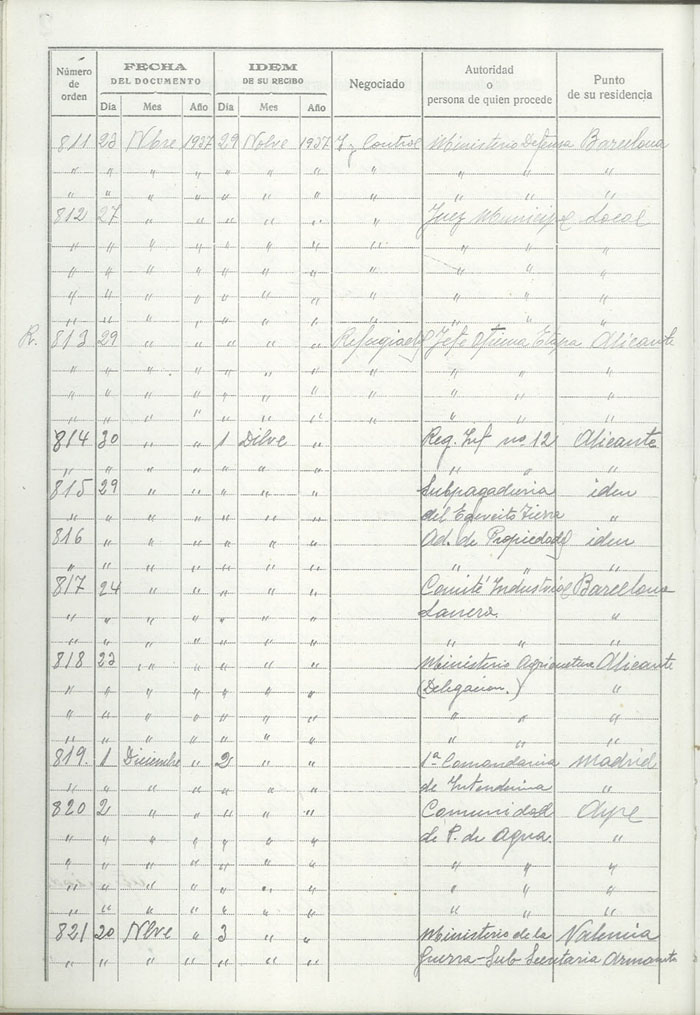 Número de orden | FECHA DEL DOCUMENTO | IDEM DE SU RECIBO | Negociado | Autoridad o persona de quien procede | Punto de su residencia
Día | Mes | Año | Día | Mes | Año
811 23 Nbre 1937 29 Nobre 1937 I y Control Ministerio Defensa Barcelona
" " " " " " " " " "
" " " " " " " " " "
812 27 " " " " " " Juez Municipal Local
" " " " " " " " "
" " " " " " " " " "
" " " " " " " " " "
" " " " " " " " " "
R. 813 29 " " " " " Refugiados Jefe Oficina Etapa Alicante
" " " " " " " " " " "
" " " " " " " " " " "
" " " " " " " " " " "
814 30 " " 1 Dibre " Reg. Inf no. 12 Alicante
" " " " " " " " " "
815 29 " " " " " Subpagaduria iden
" " " " " " " del Egercito Tierra "
816 " " " " " " Ad. de Propiedades iden
" " " " " " " " " "
817 24 " " " " " Comité Industrial Barcelona
" " " " " " " Lanera. "
" " " " " " " " " "
818 23 " " " " " Ministerio Agricultura Alicante
" " " " " " " (Delegacion.) "
" " " " " " " " " "
" " " " " " " " " "
819. 1 Diciembre " 2 " " 1ª Comandancia Madrid
" " " " " " " de Intendencia "
820 2 " " " " " Comunidad Aspe
" " " " " " " de P. de Agua. "
" " " " " " " " " "
" " " " " " " " " "
" " " " " " " " " "
821 20 Nbre " 3 " " Ministerio de la Valencia
" " " " " " " Guerra-Sub Secretaria Armamto